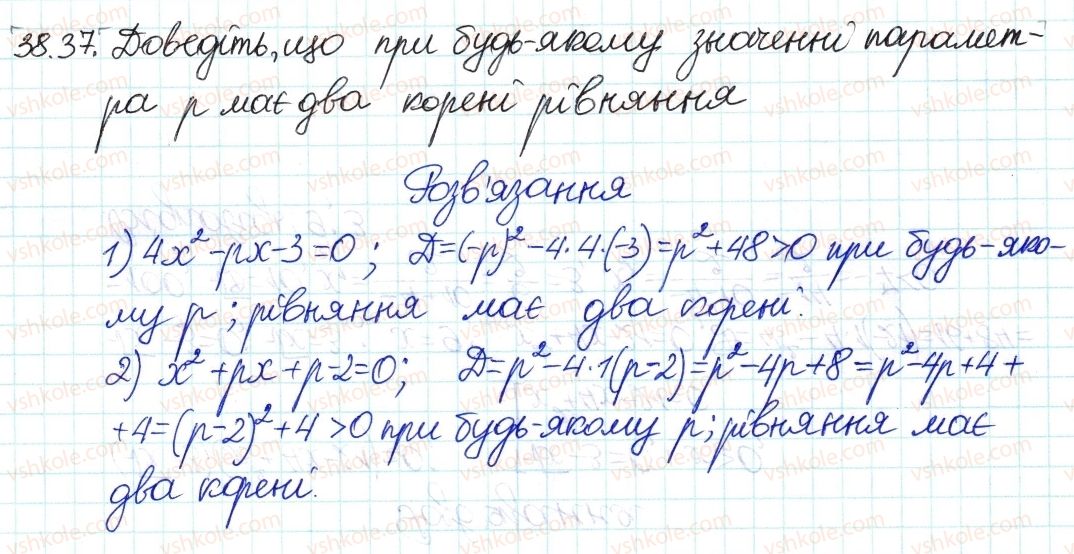 38.37. Доведіть, що при будь-якому значенні парамет-
ра p має два корені рівняння
Розв'язання
1) 4x² - px - 3 = 0 ; D = (-p)² - 4·4·(-3) = p² + 48 > 0 при будь-яко-
му p ; рівняння має два корені.
2) x² + px + p - 2 = 0 ; D = p² - 4·1(p-2) = p² - 4p + 8 = p² - 4p + 4 +
+ 4 = (p-2)² + 4 > 0 при будь-якому p ; рівняння має
два корені.